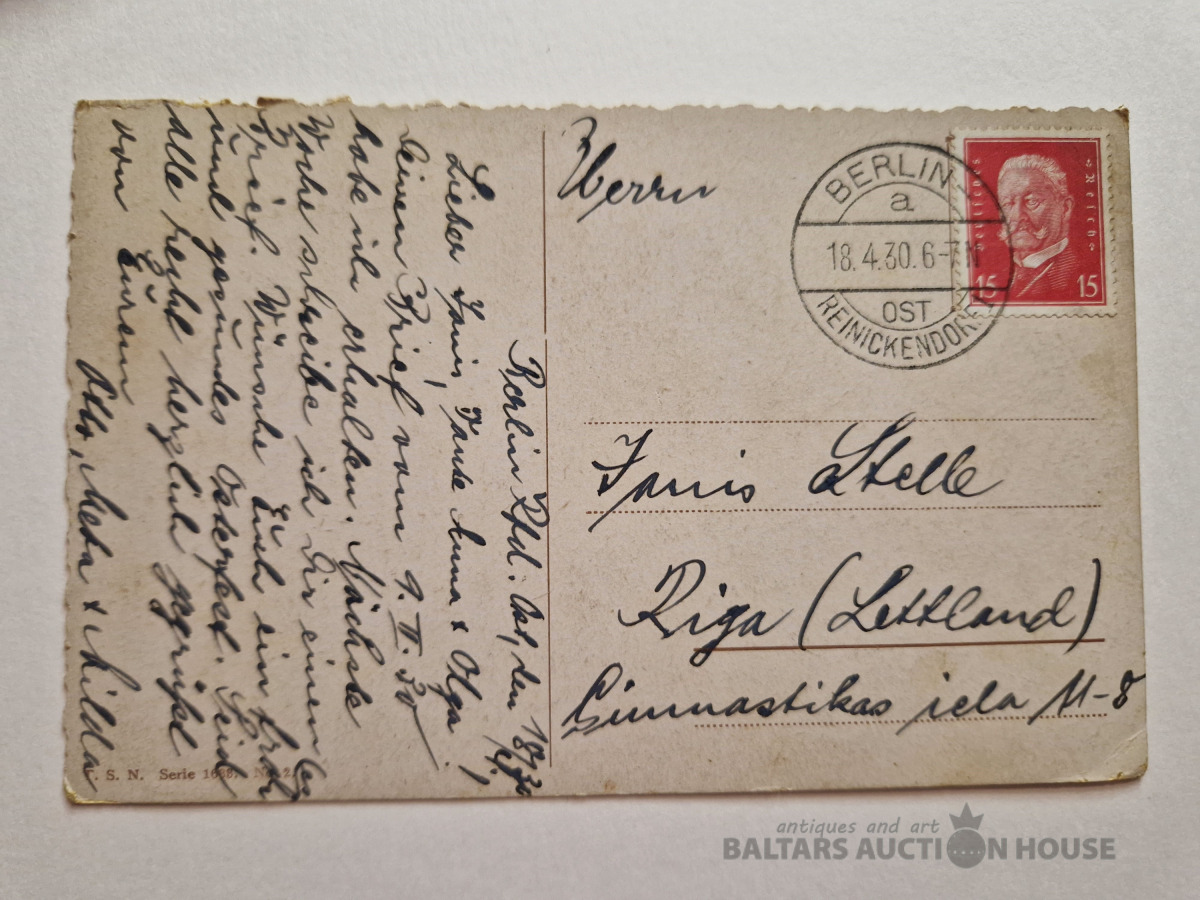 Berlin Rfd. Ost, den 18/4.30
Lieber Janis, Tante Anna & Olga!
Deinen Brief vom 9. II. 30
habe ich erhalten. Nächste
Woche schreibe ich Dir einen
Brief. Wünsche Euch ein froh
und gesundes Osterfest. Seid
alle recht herzlich gegrüßt
von Eurem
Otto, & Milda
Herrn
Janis Stelle
Riga (Lettland)
Gimnastikas iela 11-8
BERLIN-
a
18.4.30.6-7N
OST
REINICKENDORF
Deutsches Reich
15 15
T. S. N. Serie
antiques and art
BALTARS AUCTION HOUSE